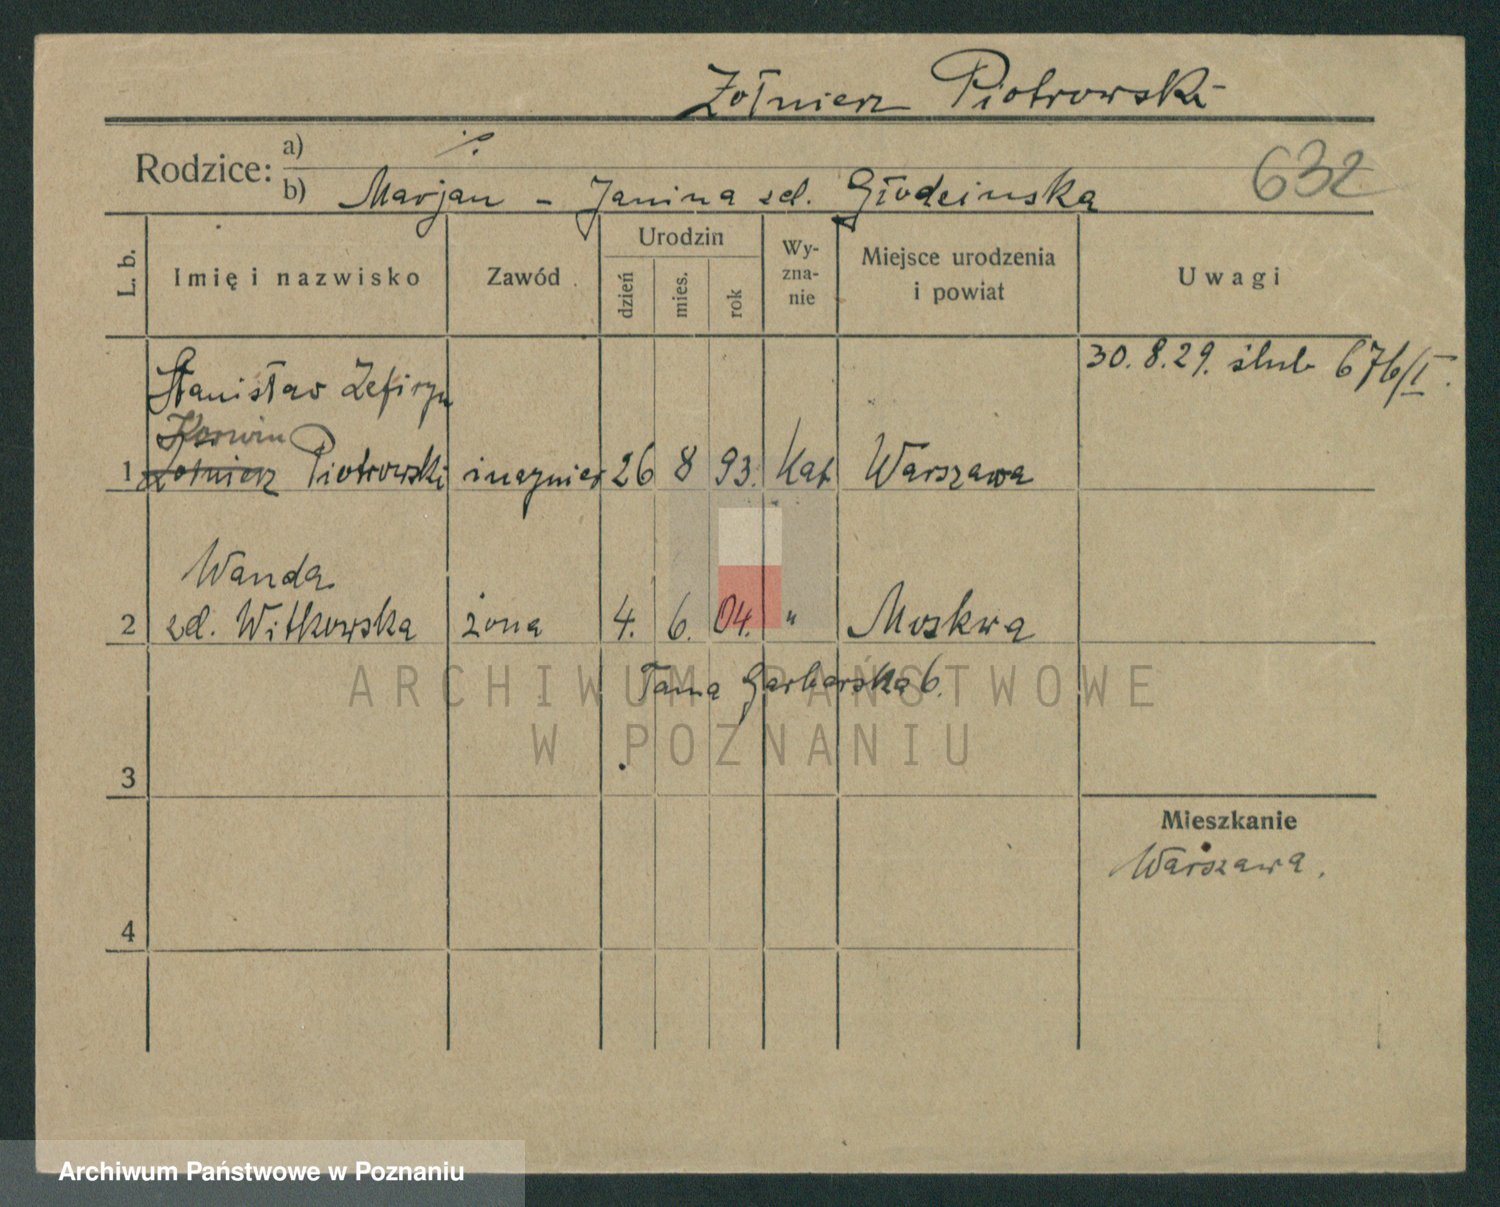 Żołnierz Piotrowski
Rodzice: a)
632
b) Marjan - Janina zd. Głodzinska
L. b.
Imię i nazwisko
Zawód
Urodzin
dzień
mies.
rok
Wy-
zna-
nie
Miejsce urodzenia
i powiat
Uwagi
30.8.29. ślub 676/I.
Stanisław Zefiryn
Korwin
1 Żołnierz Piotrowski inżynier 26 8 93. Kat. Warszawa
Wanda
2 zd. Witkowska żona 4. 6. 04. " Moskwa
Tama Garbarska 6.
ARCHIWUM PAŃSTWOWE
W POZNANIU
3
Mieszkanie
Warszawa.
4
Archiwum Państwowe w Poznaniu